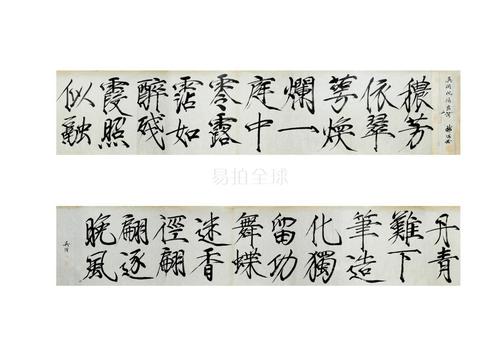 穠芳
依翠
萼煥
爛一
庭中
零露
霑如
醉殘
霞照
似融
易拍全球
丹青
難下
筆造
化獨
留功
舞蝶
迷香
徑翩
翩逐
晚風